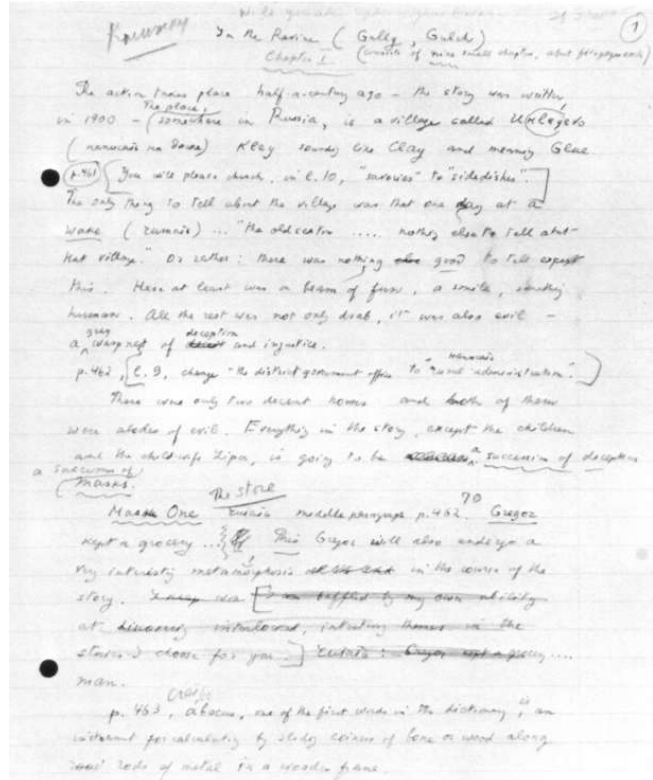 ①
In the Ravine (Gully, Gulch)
Chapter I (consists of nine small chapters, about pages each)
The action takes place half-a-century ago – the story was written
in 1900 – The place, (somewhere in Russia, is a village called Ukleyevo
( ) Kley sounding like Clay and meaning Glue.
p.461 [You will please change, in l. 10, "savories" to "sidedishes".]
The only thing to tell about the village was that one day at a
wake ( ) ... "the old sexton .... nothing else to tell about
that village." Or rather: there was nothing else good to tell except
this. Here at least was a beam of funn, a smile, something
human. All the rest was not only drab, it was also evil –
a grey wasp nest of deceit deception and injustice.
p. 462, [l. 9, change "the district government office" to "rural administration".]
There were only two decent homes and both of them
were abodes of evil. Everything in the story, except the children
and the child-wife Lipa, is going to be a succession of deceptions
a succession of
(masks.
Mask One The store middle paragraph p. 462. 70 Gregor
kept a grocery ... This Gregor will also undergo a
very interesting metamorphosis at the end in the course of the
story. [I am baffled by my own ability
at interwoven, interesting themes in the
stories I choose for you.] : Gregor kept a grocery ....
man.
p. 463, abacus, one of the first words in the dictionary, "an
instrument for calculating by sliding of bone or wood along
rods of metal in a wooden frame.